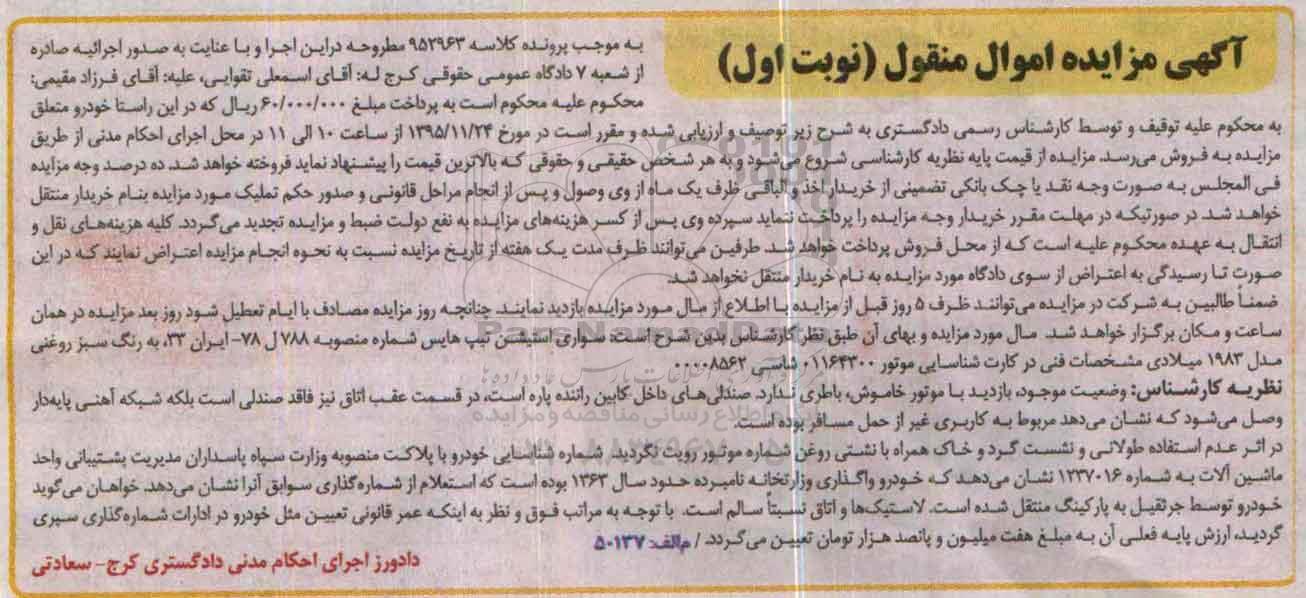 آگهی مزایده اموال منقول (نوبت اول)
به موجب پرونده کلاسه ۹۵۲۹۶۳ مطروحه دراین اجرا و با عنایت به صدور اجرائیه صادره
از شعبه ۷ دادگاه عمومی حقوقی کرج له: آقای اسمعلی تقوایی، علیه: آقای فرزاد مقیمی:
محکوم علیه محکوم است به پرداخت مبلغ ۶۰/۰۰۰/۰۰۰ ریال که در این راستا خودرو متعلق
به محکوم علیه توقیف و توسط کارشناس رسمی دادگستری به شرح زیر توصیف و ارزیابی شده و مقرر است در مورخ ۱۳۹۵/۱۱/۲۴ از ساعت ۱۰ الی ۱۱ در محل اجرای احکام مدنی از طریق
مزایده به فروش می‌رسد. مزایده از قیمت پایه نظریه کارشناسی شروع می‌شود و به هر شخص حقیقی و حقوقی که بالاترین قیمت را پیشنهاد نماید فروخته خواهد شد. ده درصد وجه مزایده
فی المجلس به صورت وجه نقد یا چک بانکی تضمینی از خریدار اخذ و الباقی ظرف یک ماه از وی وصول و پس از انجام مراحل قانونی و صدور حکم تملیک مورد مزایده بنام خریدار منتقل
خواهد شد. در صورتیکه در مهلت مقرر خریدار وجه مزایده را پرداخت ننماید سپرده وی پس از کسر هزینه‌های مزایده به نفع دولت ضبط و مزایده تجدید می‌گردد. کلیه هزینه‌های نقل و
انتقال به عهده محکوم علیه است که از محل فروش پرداخت خواهد شد. طرفین می‌توانند ظرف مدت یک هفته از تاریخ مزایده نسبت به نحوه انجام مزایده اعتراض نمایند که در این
صورت تا رسیدگی به اعتراض از سوی دادگاه مورد مزایده به نام خریدار منتقل نخواهد شد.
ضمناً طالبین به شرکت در مزایده می‌توانند ظرف ۵ روز قبل از مزایده با اطلاع از مال مورد مزایده بازدید نمایند. چنانچه روز مزایده مصادف با ایام تعطیل شود روز بعد مزایده در همان
ساعت و مکان برگزار خواهد شد. مال مورد مزایده و بهای آن طبق نظر کارشناس بدین شرح است: سواری استیشن تیپ هایس شماره منصوبه ۷۸۸ ل ۷۸- ایران ۳۳، به رنگ سبز روغنی
مدل ۱۹۸۳ میلادی مشخصات فنی در کارت شناسایی موتور ۰۱۱۶۴۳۰۰ شاسی ۰۰۰۰۸۵۶۲
نظریه کارشناس: وضعیت موجود، بازدید با موتور خاموش، باطری ندارد. صندلی‌های داخل کابین راننده پاره است، در قسمت عقب اتاق نیز فاقد صندلی است بلکه شبکه آهنی پایه‌دار
وصل می‌شود که نشان می‌دهد مربوط به کاربری غیر از حمل مسافر بوده است.
در اثر عدم استفاده طولانی و نشست گرد و خاک همراه با نشتی روغن شماره موتور رویت نگردید. شماره شناسایی خودرو با پلاکت منصوبه وزارت سپاه پاسداران مدیریت پشتیبانی واحد
ماشین آلات به شماره ۱۲۳۷۰۱۶ نشان می‌دهد که خودرو واگذاری وزارتخانه نامبرده حدود سال ۱۳۶۳ بوده است که استعلام از شماره‌گذاری سوابق آنرا نشان می‌دهد. خواهان می‌گوید
خودرو توسط جرثقیل به پارکینگ منتقل شده است. لاستیک‌ها و اتاق نسبتاً سالم است. با توجه به مراتب فوق و نظر به اینکه عمر قانونی تعیین مثل خودرو در ادارات شماره‌گذاری سپری
گردید، ارزش پایه فعلی آن به مبلغ هفت میلیون و پانصد هزار تومان تعیین می‌گردد. / م‌الف: ۵۰۱۳۷
دادورز اجرای احکام مدنی دادگستری کرج- سعادتی
ParsNamadData